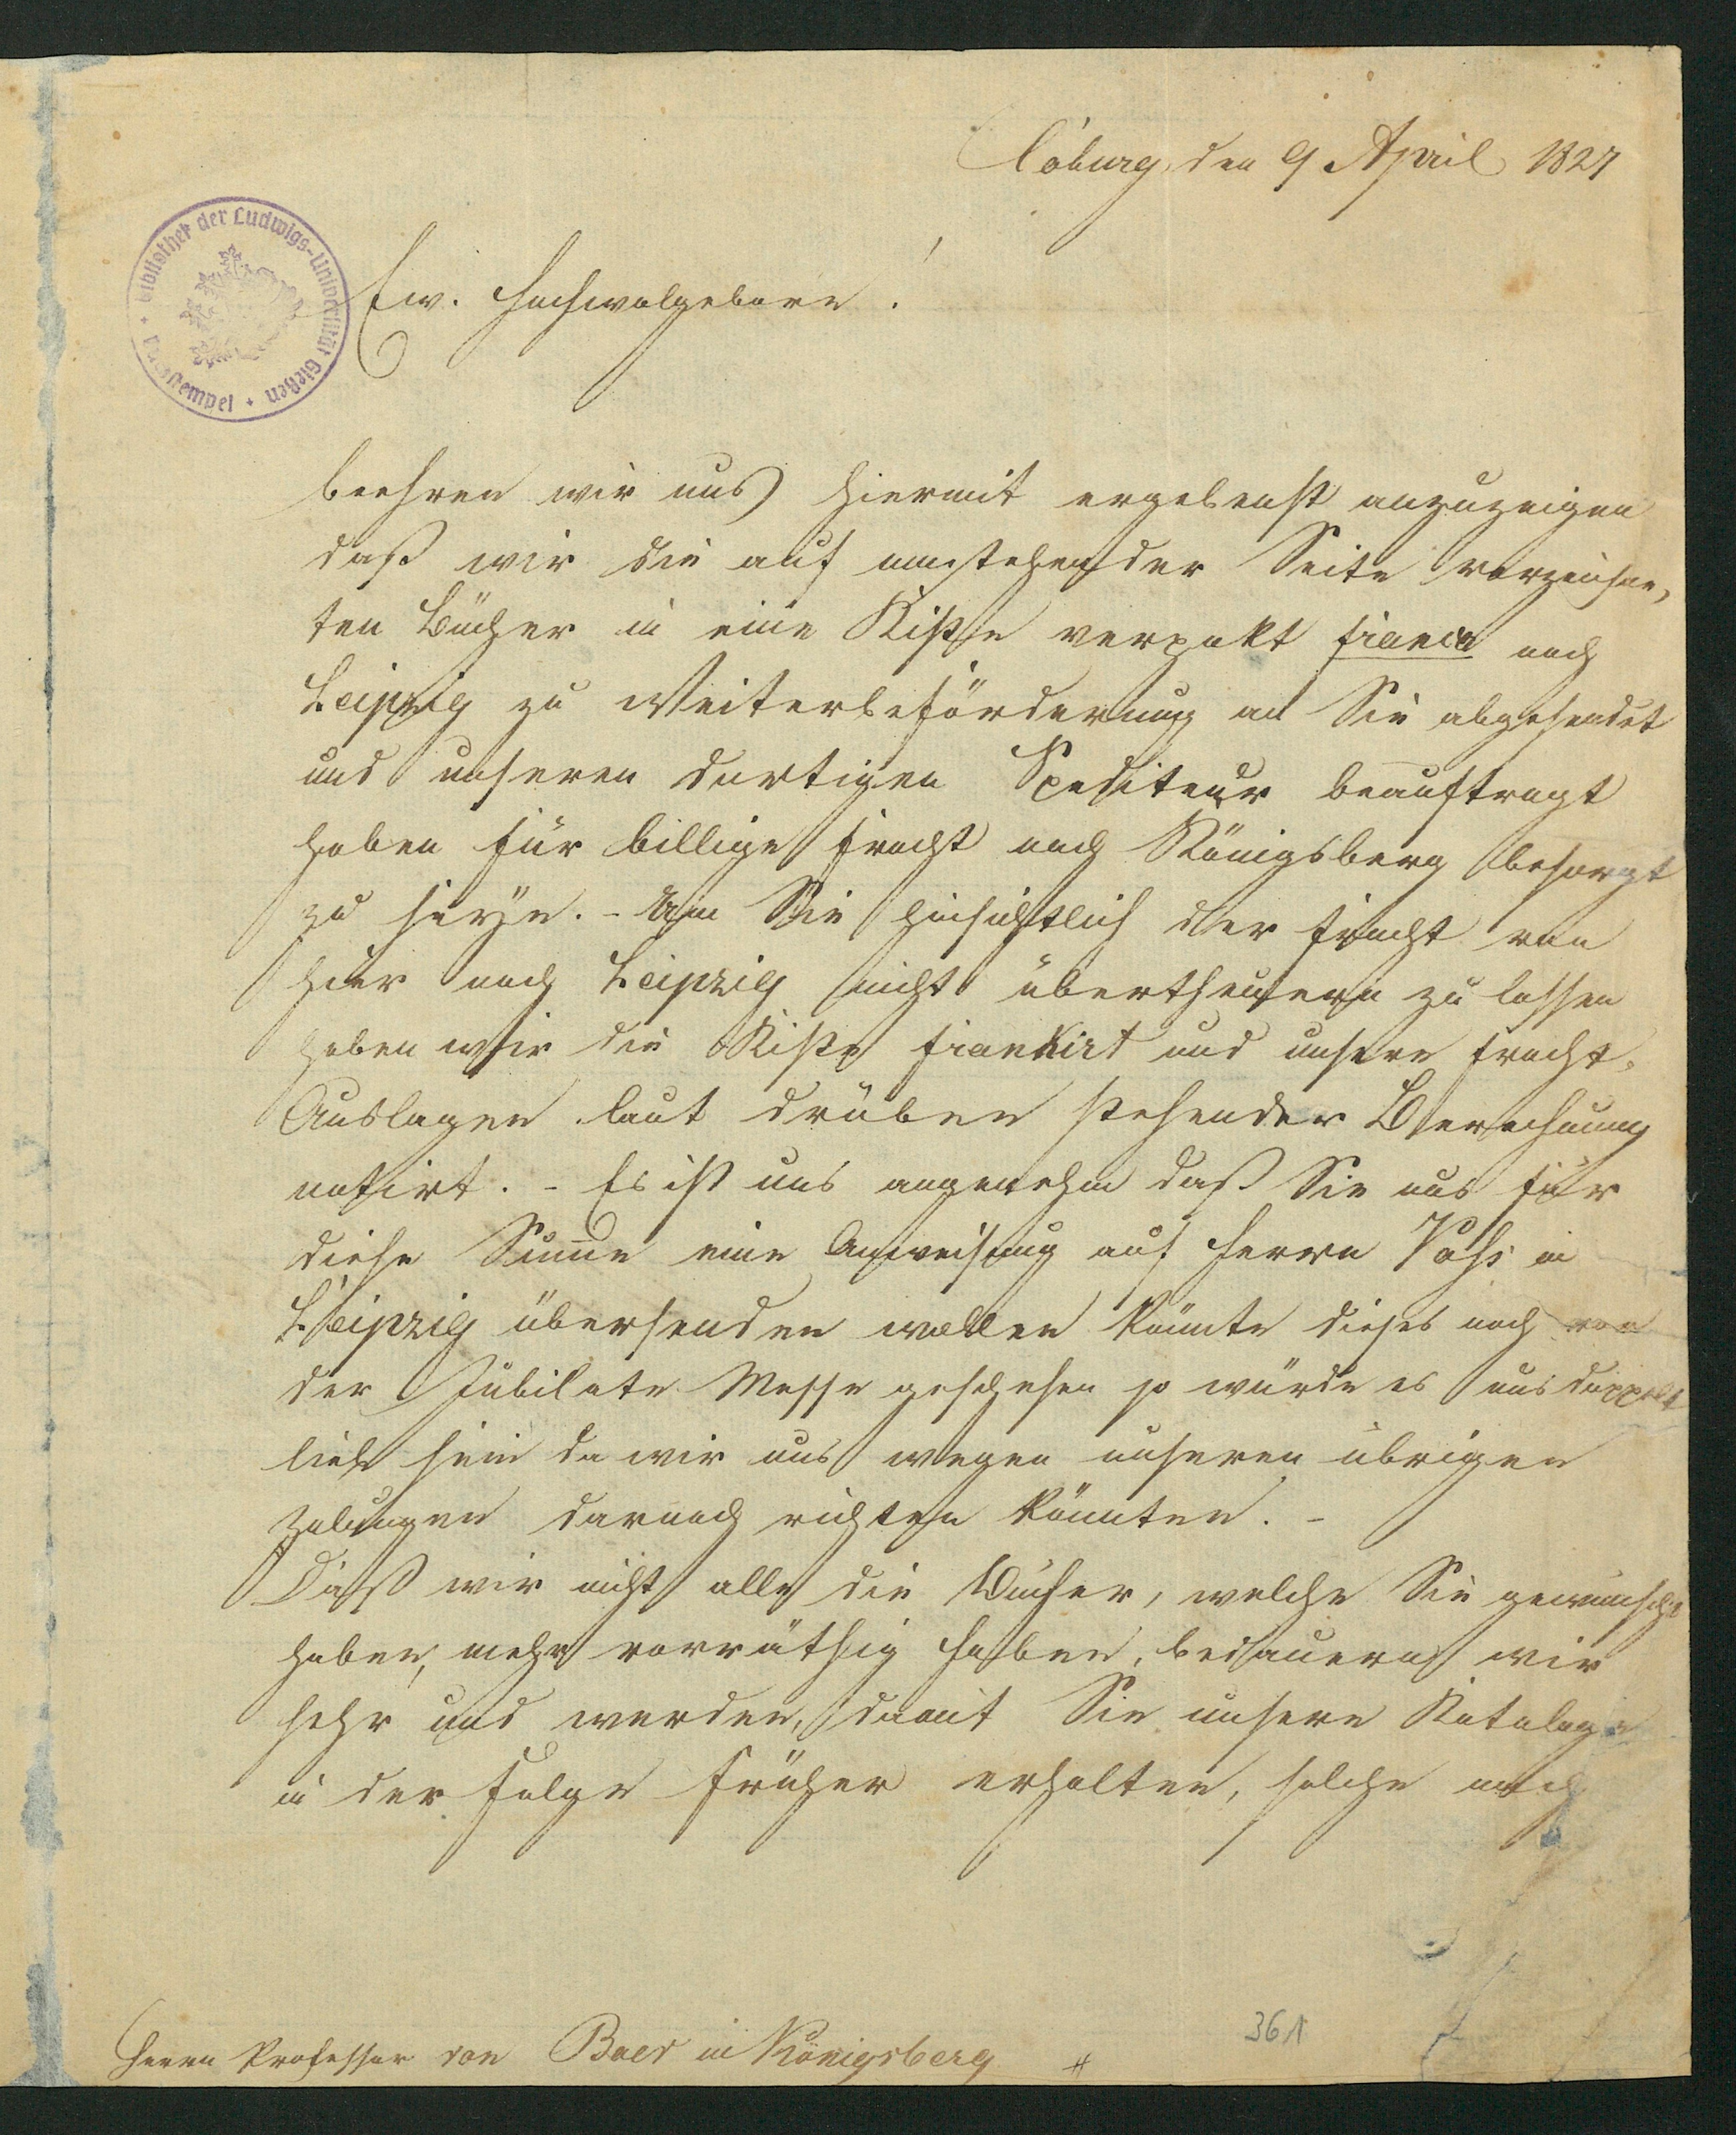 Coburg, den 9 April 1827
Bibliothek der Ludwigs-Universität Gießen
Ew. Hochwolgeboren!
beehren wir uns hiermit ergebenst anzuzeigen
daß wir die auf umstehender Seite verzeichne-
ten Bücher in eine Kiste verpakt franco nach
Leipzig zu Weiterbeförderung an Sie abgesendet
und unseren dortigen Spediteur beauftragt
haben für billige Fracht nach Königsberg besorgt
zu seyn. - Um Sie hinsichtlich der Fracht von
hier nach Leipzig nicht übertheuern zu lassen
haben wir die Kiste frankirt und unsere Fracht-
Auslagen laut drüben stehender Berechnung
notirt. - Es ist uns angenehm daß Sie uns für
diese Summe eine Anweisung auf Herrn Voß in
Leipzig übersenden wollen könnte dieses noch vor
der Jubilate Messe geschehen so würde es uns doppelt
lieb sein da wir uns wegen unseren übrigen
Zalungen darnach richten könnten. -
Daß wir nicht alle die Bücher, welche Sie gewünscht
haben, mehr vorräthig haben, bedauern wir
sehr und werden, damit Sie unsere Kataloge
in der Folge früher erhalten, solche nach
Herrn Professor von Baer in Königsberg #
361